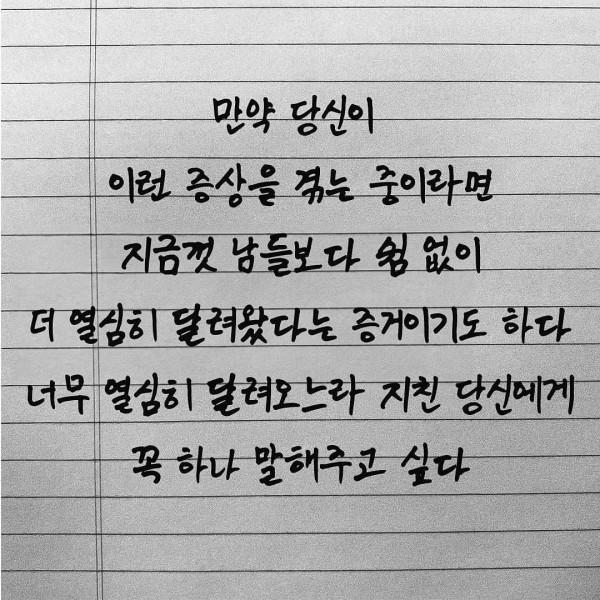 만약 당신이
이런 증상을 겪는 중이라면
지금껏 남들보다 쉼 없이
더 열심히 달려왔다는 증거이기도 하다
너무 열심히 달려오느라 지친 당신에게
꼭 하나 말해주고 싶다